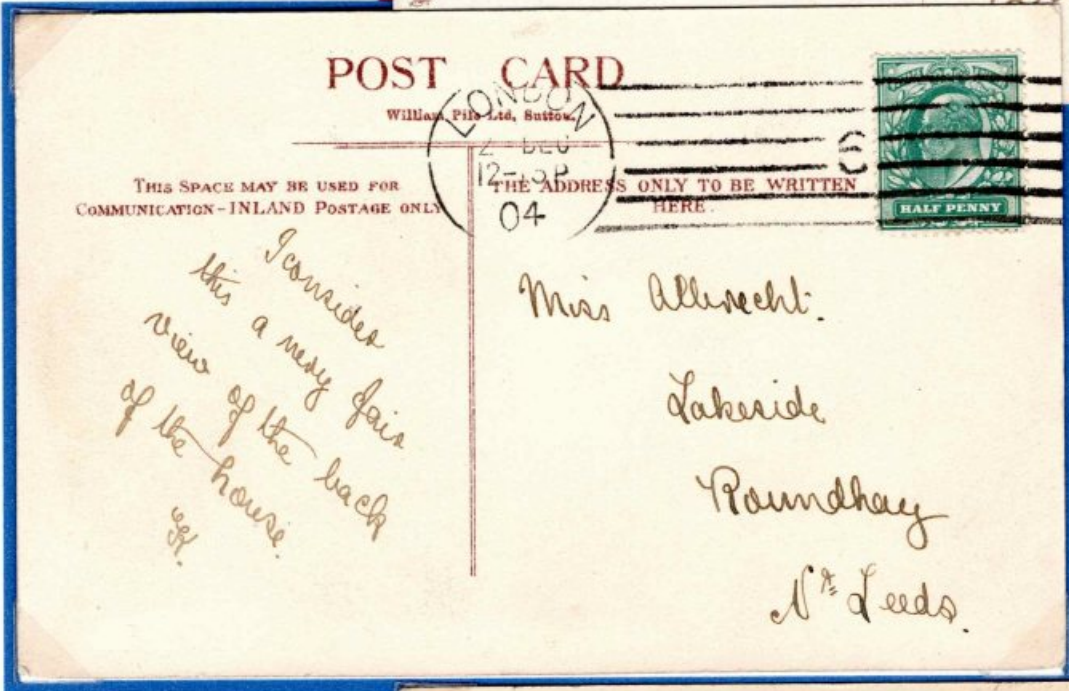 POST CARD
William Pile Ltd, Sutton.
LONDON
12-15P
04
6
HALF PENNY
THIS SPACE MAY BE USED FOR
COMMUNICATION-INLAND POSTAGE ONLY
THE ADDRESS ONLY TO BE WRITTEN
HERE.
I consider
this a very fair
view of the back
of the house.
K.
Miss Albrecht.
Lakeside
Roundhay
Nr Leeds.